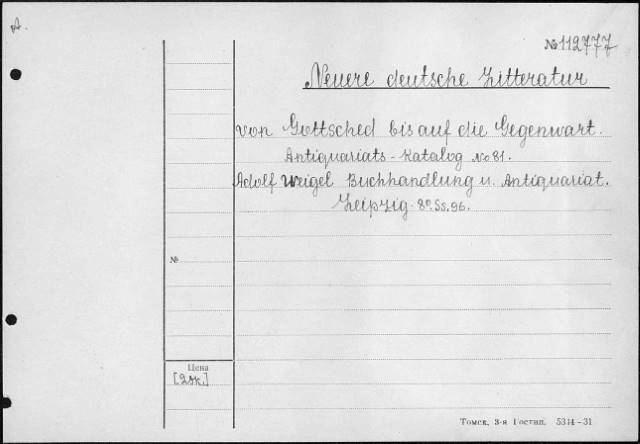 A.
№ 112777
Neuere deutsche Litteratur
von Gottsched bis auf die Gegenwart.
Antiquariats-Katalog No 81.
Adolf Weigel Buchhandlung u. Antiquariat.
Leipzig. 8º. Ss. 96.
№
Цена
[2 эк.]
Томск, 3-я Гостип. 5314–31